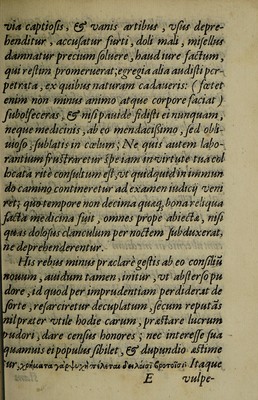 via captiosis, & vanis artibus, vsus depre-
henditur, accusatur furti, doli mali, misellus
damnatur precium soluere, haud iure factum,
qui restim promeruerat; egregia alia audisti per-
petrata, ex quibus naturam cadaueris (fœtet
enim non minus animo atque corpore saciar)
subolfeceras, & nisi pauidè fidisti ei nunquam,
neque medicinis, ab eo mendacissimo, sed obli-
uioso, sublatis in cœlum; Ne quis autem labo-
rantium frustraretur spe iam in virtute tua col
locata ritè consultum est, vt quidquid in immun
do camino contineretur ad examen iudicij veni
ret; quo tempore non decima quæq, bona reliqua
facta medicina fuit, omnes propè abiectæ, nisi
quas dolosus clanculum per noctem subduxerat,
ne deprehenderentur.
His rebus minus præclarè gestis ab eo consiliũ
nouum, auidum tamen, initur, vt absterso pu
dore, id quod per imprudentiam perdiderat de
sorte, resarciretur decuplatum, secum reputãs
nil præter vtile hodie carum, præstare lucrum
pudori, dare census honores; nec interesse sua
quamuis ei populus sibilet, & dupundio æstime
tur, χρήματα γὰρ ψυχὴ πέλεται δειλοῖσι βροτοῖσι Itaque
E vulpe-